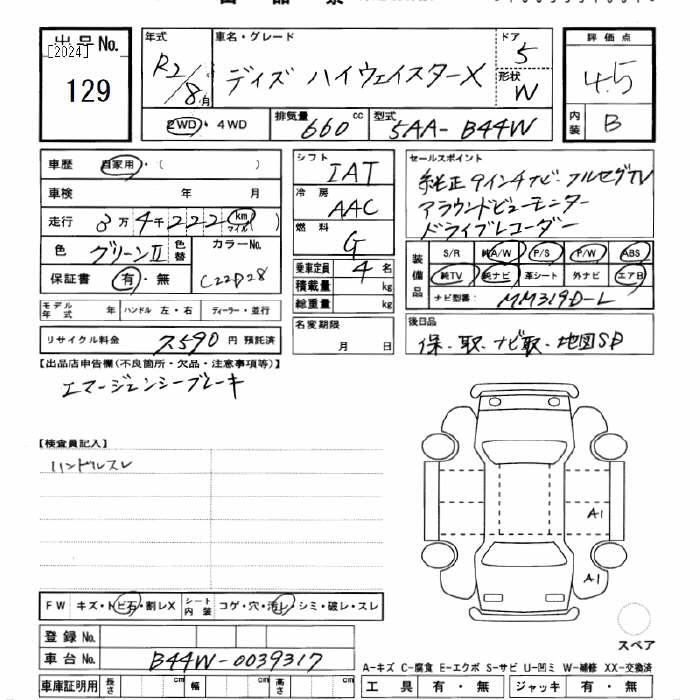 出品No.
[2024]
129
年式 R2/8月
車名・グレード
デイズ ハイウェイスターX
ドア 5
形状 W
評価点
4.5
内装 B
2WD・4WD
排気量 660 cc
型式 5AA-B44W
車歴 自家用・( )
車検 年 月
走行 3万4千222 km マイル( )
色 グリーンⅡ 色替 カラーNo.
保証書 有・無 C22D28
モデル年式 年 ハンドル 左・右 ディーラー・並行
リサイクル料金 7590 円 預託済
シフト IAT
冷房 AAC
燃料 G
乗車定員 4 名
積載量 kg
総重量 kg
名変期限
月 日
セールスポイント
純正9インチナビ フルセグTV
アラウンドビューモニター
ドライブレコーダー
装備品
S/R 純A/W P/S P/W ABS
純TV 純ナビ 革シート 外ナビ エアB
ナビ型番: MM319D-L
後日品
保・取・ナビ取・地図SD
【出品店申告欄(不良箇所・欠品・注意事項等)】
エマージェンシーブレーキ
【検査員記入】
ハンドルスレ
A1
A1
FW キズ・トビ石・割レX シート内装 コゲ・穴・汚レ・シミ・破レ・スレ
スペア
登録No.
車台No. B44W-0039317
A-キズ C-腐食 E-エクボ S-サビ U-凹ミ W-補修 XX-交換済
車庫証明用 長さ cm 幅 cm 高さ cm
工具 有・無 ジャッキ 有・無